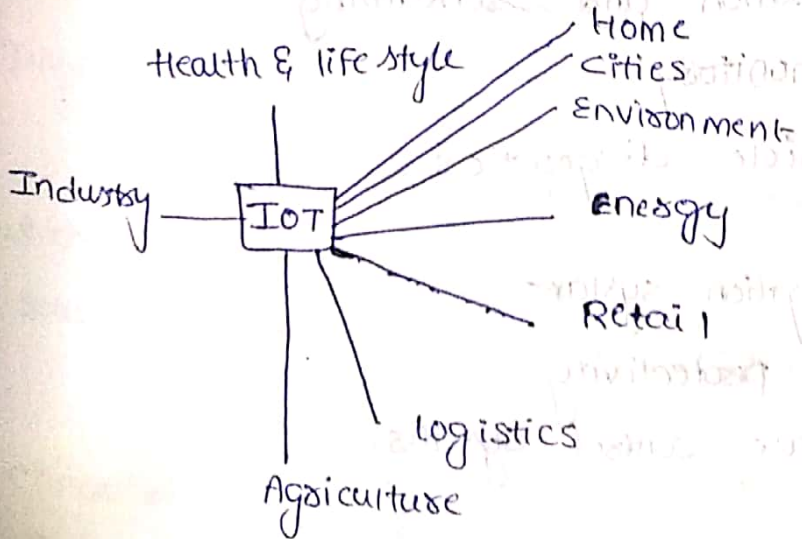 Home
Health & life style
Cities
Environment
Industry
IOT
Energy
Retail
Logistics
Agriculture